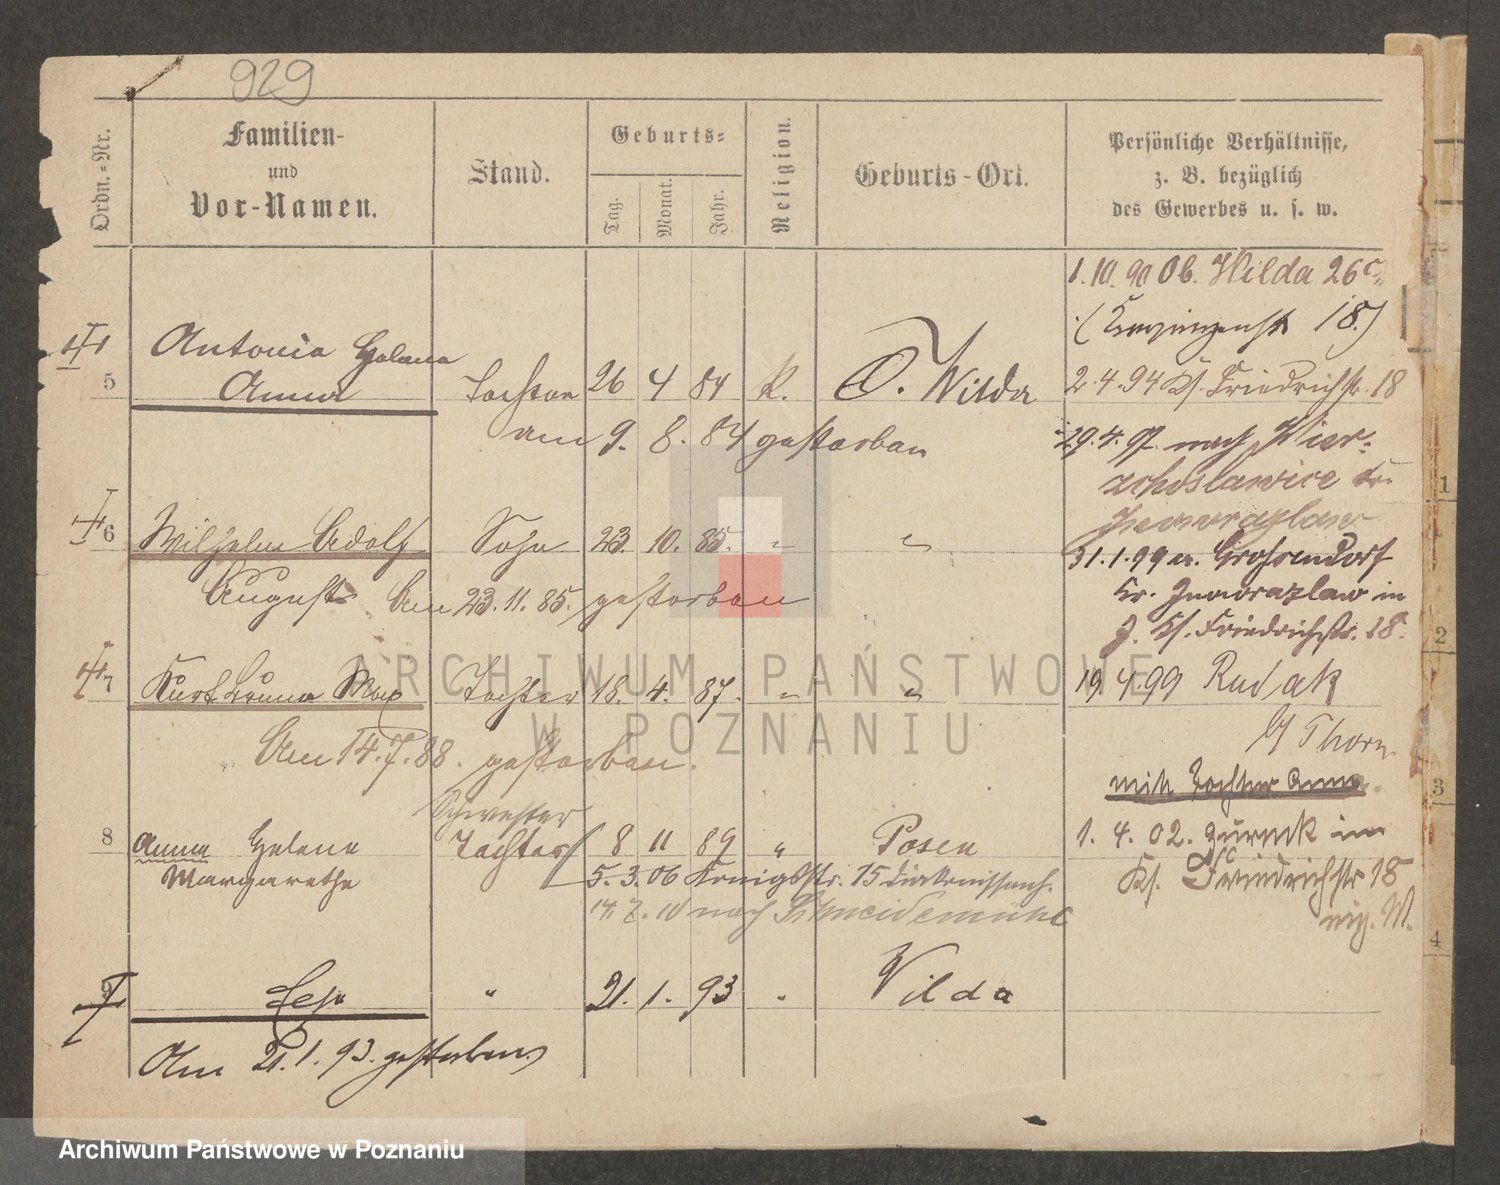 929
Ordn.-Nr.
Familien-
und
Vor-Namen.
Stand.
Geburts-
Tag.
Monat.
Jahr.
Religion.
Geburts-Ort.
Persönliche Verhältnisse,
z. B. bezüglich
des Gewerbes u. s. w.
1. 10. 90 Ob. Wilda 26
18.)
2. 4. 94 Kf. Friedrichstr. 18
29. 4. 97. nach Wier-
zchoslawice Kr.
Inowrazlaw
31. 1. 99 Grossendorf
Kr. Inowrazlaw in
Kf. Friedrichstr. 18.
19. 4. 99 Rudak
Thorn
mit Tochter Anna.
1. 4. 02. zurück in
Kf. Friedrichstr 18
5 Antonia Helena
Anna Tochter 26 4 84 k. O. Wilda
am 9. 8. 84 gestorben
6 Wilhelm Adolf Sohn 23. 10. 85. " "
August Am 23. 11. 85. gestorben
7 Kurt Bruno Max Tochter 18. 4. 87. " "
Am 14. 7. 88. gestorben.
Schwester
8 Anna Helene Tochter 8 11 89 " Posen
Margarethe 5. 3. 06 Königstr. 15
nach Schneidemühl
9 " 21. 1. 93 " Wilda
Am 21. 1. 93. gestorben
1
2
3
4
ARCHIWUM PAŃSTWOWE
W POZNANIU
Archiwum Państwowe w Poznaniu